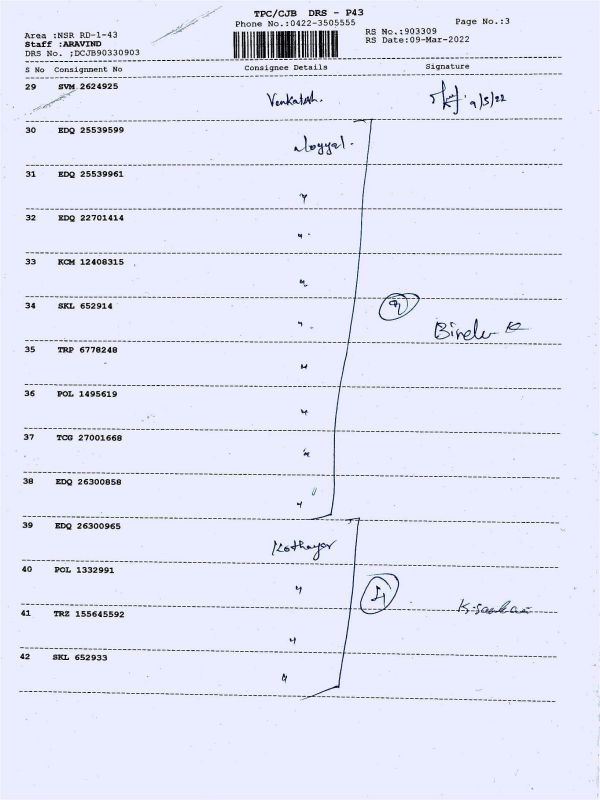 TPC/CJB DRS - P43
Phone No.:0422-3505555
Page No.:3
Area :NSR RD-1-43
RS No.:903309
Staff :ARAVIND
RS Date:09-Mar-2022
DRS No. ;DCJB90330903
S No Consignment No Consignee Details Signature
29 SVM 2624925
Venkatesh. 9/3/22
30 EDQ 25539599
Noyyal.
31 EDQ 25539961
"
32 EDQ 22701414
"
33 KCM 12408315
"
34 SKL 652914
" 9
Bindu K
35 TRP 6778248
"
36 POL 1495619
"
37 TCG 27001668
"
38 EDQ 26300858
"
39 EDQ 26300965
Kothayar
40 POL 1332991
" 4
41 TRZ 155645592
"
42 SKL 652933
"